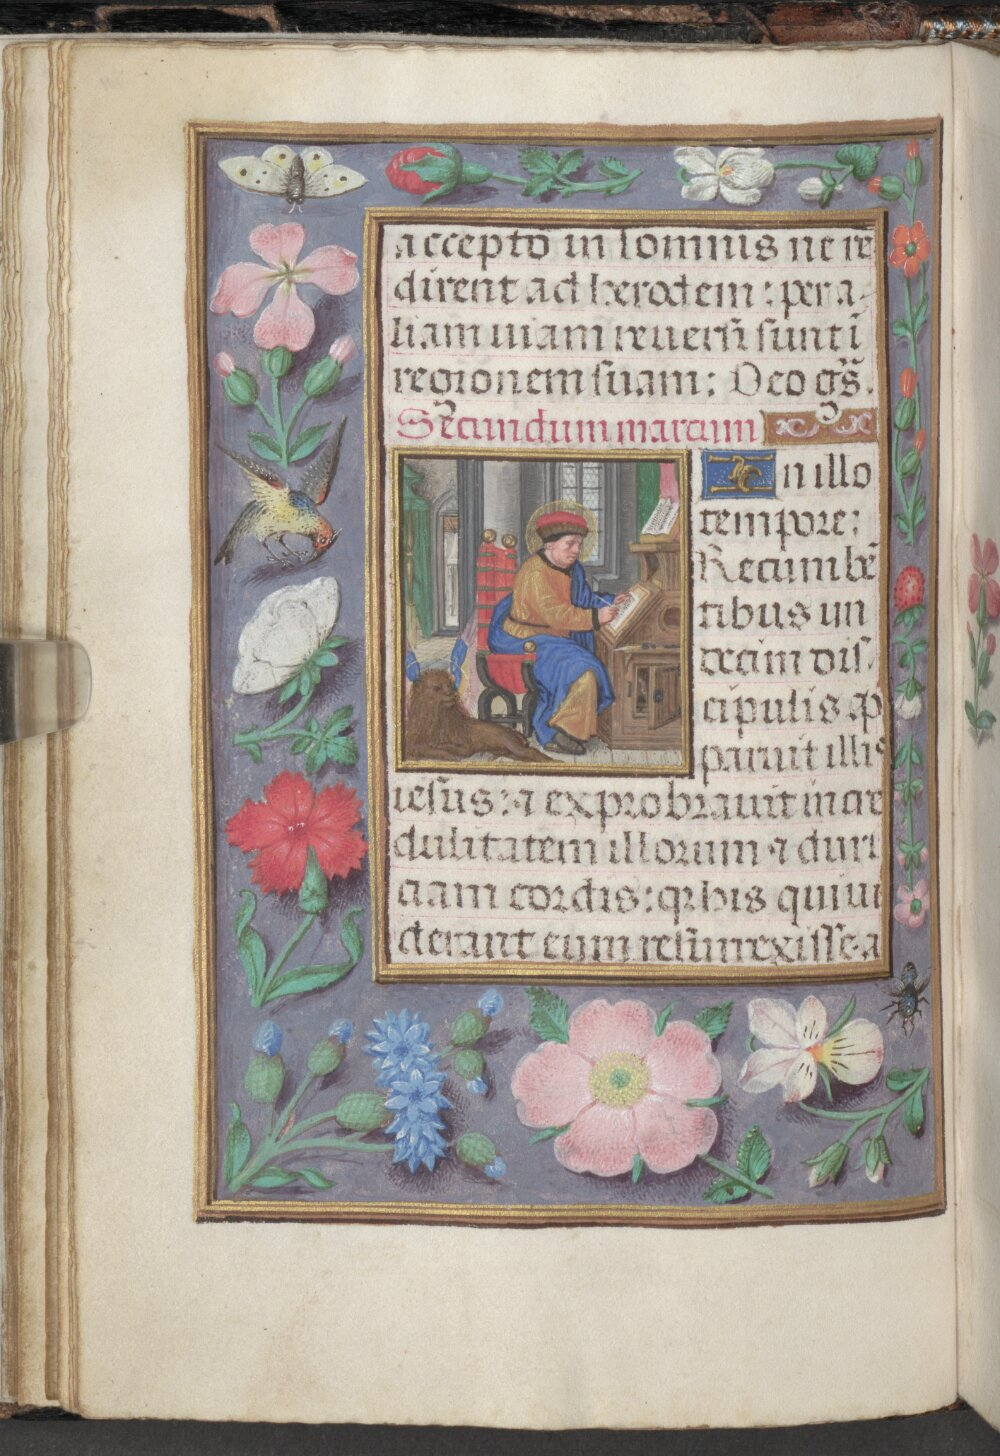 accepto in somnis ne re
dirent ad herodem : per a-
liam uiam reuersi sunt ī
regionem suam : Deo grs̄.
Secundum marcum
In illo
tempore :
Recumbē
tibus un
decim dis-
cipulis ap
paruit illis
iesus : ⁊ exprobrauit incre
dulitatem illorum ⁊ duri
ciam cordis : q̇ his qui ui
derant eum resurrexisse a